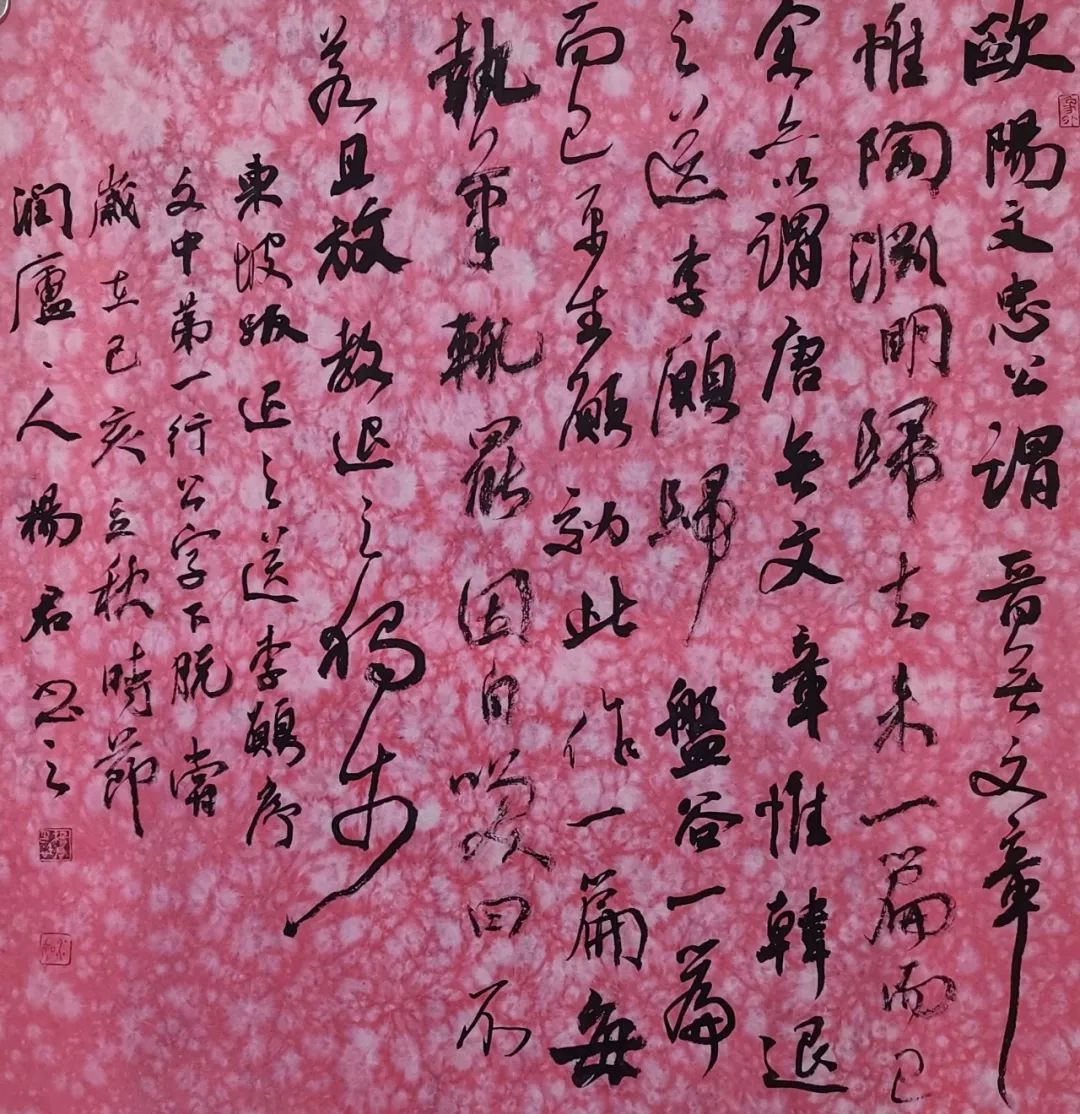 歐陽文忠公謂晉無文章
惟陶淵明歸去來一篇而已
余亦以謂唐無文章惟韓退
之送李願歸盤谷一篇
而已平生願效此作一篇每
執筆輒罷因自笑曰不
若且放教退之獨步
東坡跋退之送李愿序
文中第一行公字下脫嘗
歲在己亥立秋時節
潤廬主人楊君書之